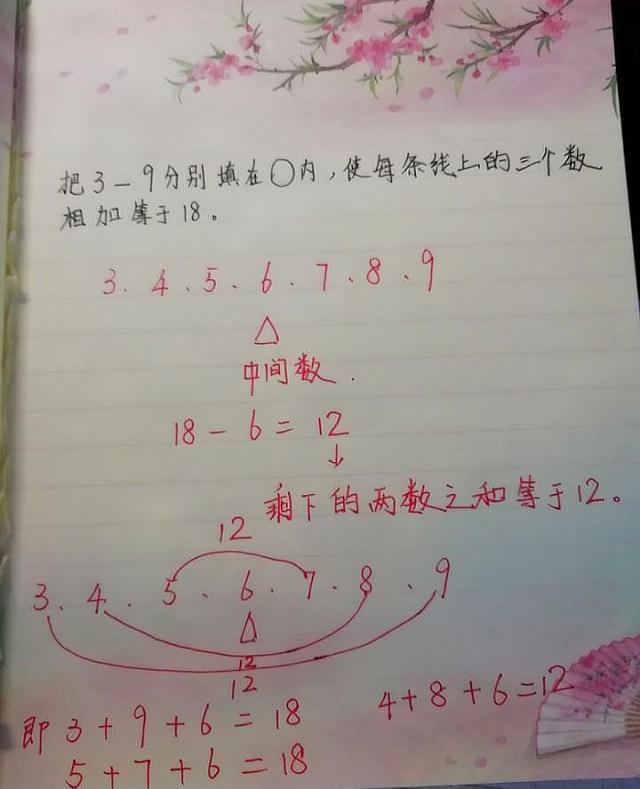 把3－9分别填在○内，使每条线上的三个数
相加等于18。
3、4、5、6、7、8、9
△
中间数.
18－6＝12
↓
剩下的两数之和等于12。
12
3、4、5、6、7、8、9
△
12
12
4＋8＋6＝12
即3＋9＋6＝18
5＋7＋6＝18